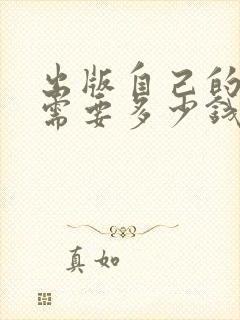 出版自己的
需要多少钱
真如